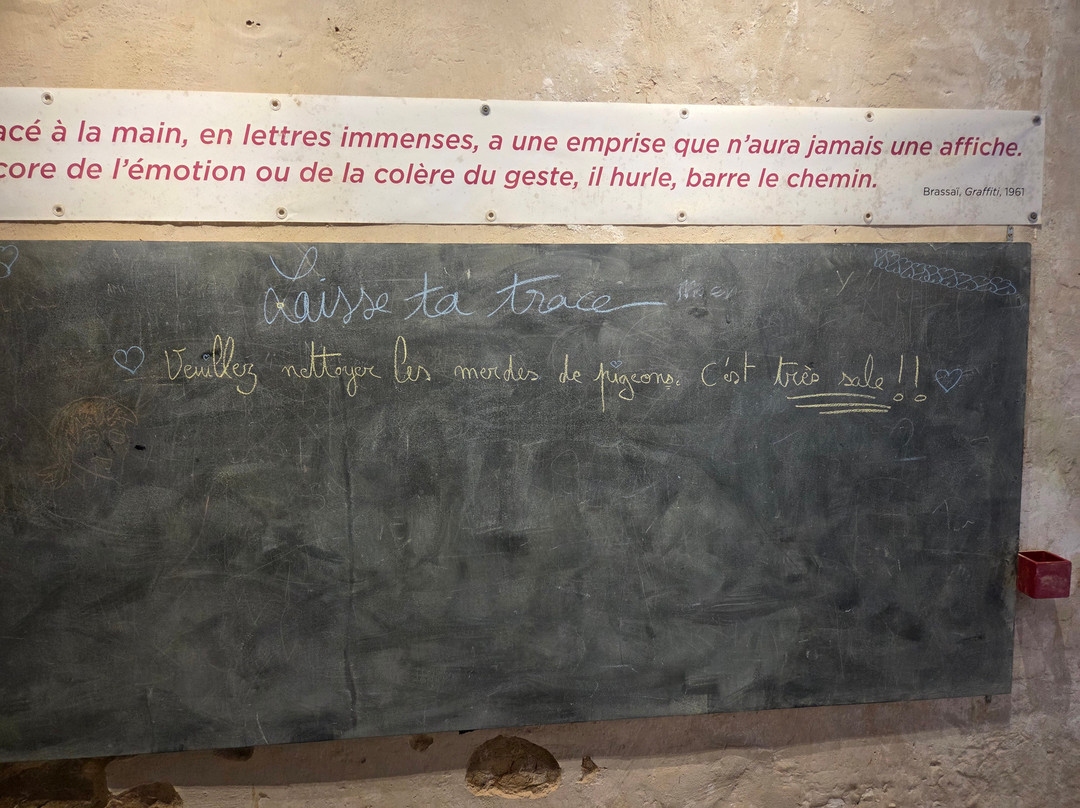 acé à la main, en lettres immenses, a une emprise que n'aura jamais une affiche.
core de l'émotion ou de la colère du geste, il hurle, barre le chemin.
Brassaï, Graffiti, 1961
Laisse ta trace
Veuillez nettoyer les merdes de pigeons. C'est très sale !!